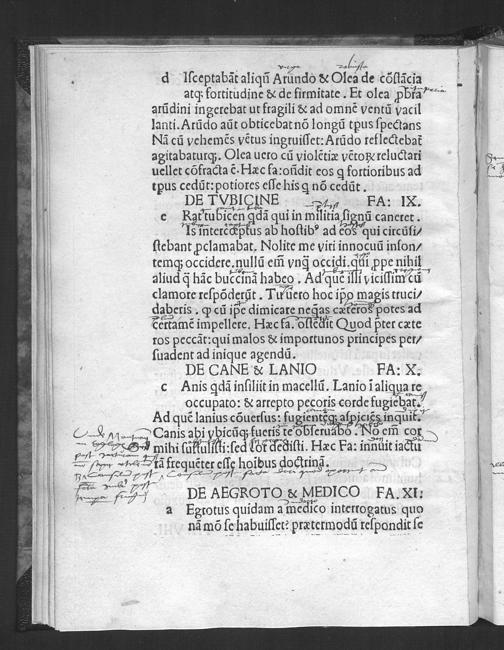 d Isceptabāt aliqn̄ Arūdo & Olea de cōstācia
atq; fortitudine & de firmitate. Et olea ꝓbra
arūdini ingerebat ut fragili & ad omnē ventū vacil
lanti. Arūdo aūt obticebat nō longū tp̄us spectans
Nā cū vehemēs vētus ingruisset: Arūdo reflectebat̄
agitabaturq;. Olea uero cū violētiæ vētoꝝ reluctari
uellet cōfracta ē. Hæc fa: oñdit eos q̄ fortioribus ad
tp̄us cedūt: potiores esse his q̄ nō cedūt.
DE TVBICINE FA: IX.
e Rat tubicen qdā qui in militia signū caneret.
Is interceptus ab hostibꝰ ad eos qui circūsi/
stebant ꝓclamabat. Nolite me viri innocuū inson/
temq; occidere. nullū em̄ vnq̄ occidi. qui ꝓpe nihil
aliud q̄ hāc buccinā habeo. Ad quē illi vicissim cū
clamore respōderūt. Tu uero hoc ip̄o magis truci/
daberis. ꝙ cū ip̄e dimicare neq̄as cæteros potes ad
certamē impellere. Hæc fa. ostēdit Quod p̄ter cæte
ros peccāt: qui malos & importunos principes per/
suadent ad inique agendū.
DE CANE & LANIO FA: X.
c Anis qdā insiliit in macellū. Lanio ī aliqua re
occupato: & arrepto pecoris corde fugiebat.
Ad quē lanius cōuersus: fugientēq; aspiciēs inquit.
Canis abi vbicūq; fueris te obseruabo. No em̄ cor
mihi sustulisti: sed cor dedisti. Hæc Fa: innuit iactu
rā frequēter esse hoībus doctrinā.
DE AEGROTO & MEDICO FA. XI:
a Egrotus quidam a medico interrogatus quo
nā mō se habuisset? prætermodū respondit se